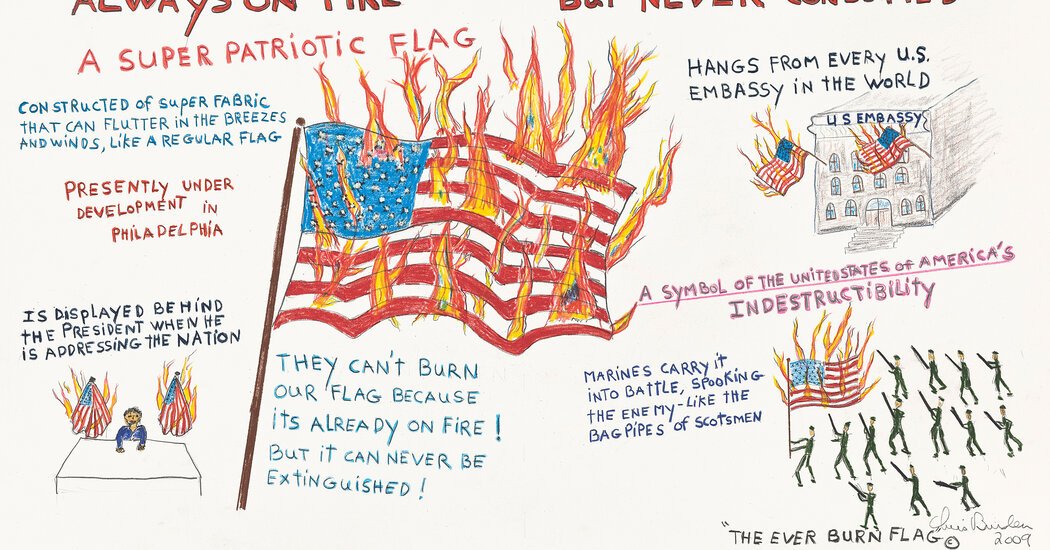 ALWAYS ON FIRE BUT NEVER CONSUMED
A SUPER PATRIOTIC FLAG
CONSTRUCTED of SUPER FABRIC
THAT CAN FLUTTER IN THE BREEZES
AND WINDS, LIKE A REGULAR FLAG
PRESENTLY UNDER
DEVELOPMENT IN
PHILADELPHIA
HANGS FROM EVERY U.S.
EMBASSY IN the WORLD
U S EMBASSY
A SYMBOL OF THE UNITED STATES of AMERICA'S
INDESTRUCTIBILITY
IS DISPLAYED BEHIND
THE PRESIDENT WHEN HE
IS ADDRESSING THE NATION
THEY CAN'T BURN
OUR FLAG BECAUSE
ITS ALREADY ON FIRE!
BUT IT CAN NEVER BE
EXTINGUISHED!
MARINES CARRY IT
INTO BATTLE, SPOOKING
THE ENEMY-LIKE THE
BAGPIPES of SCOTSMEN
"THE EVER BURN FLAG ©
Chris Burden
2009